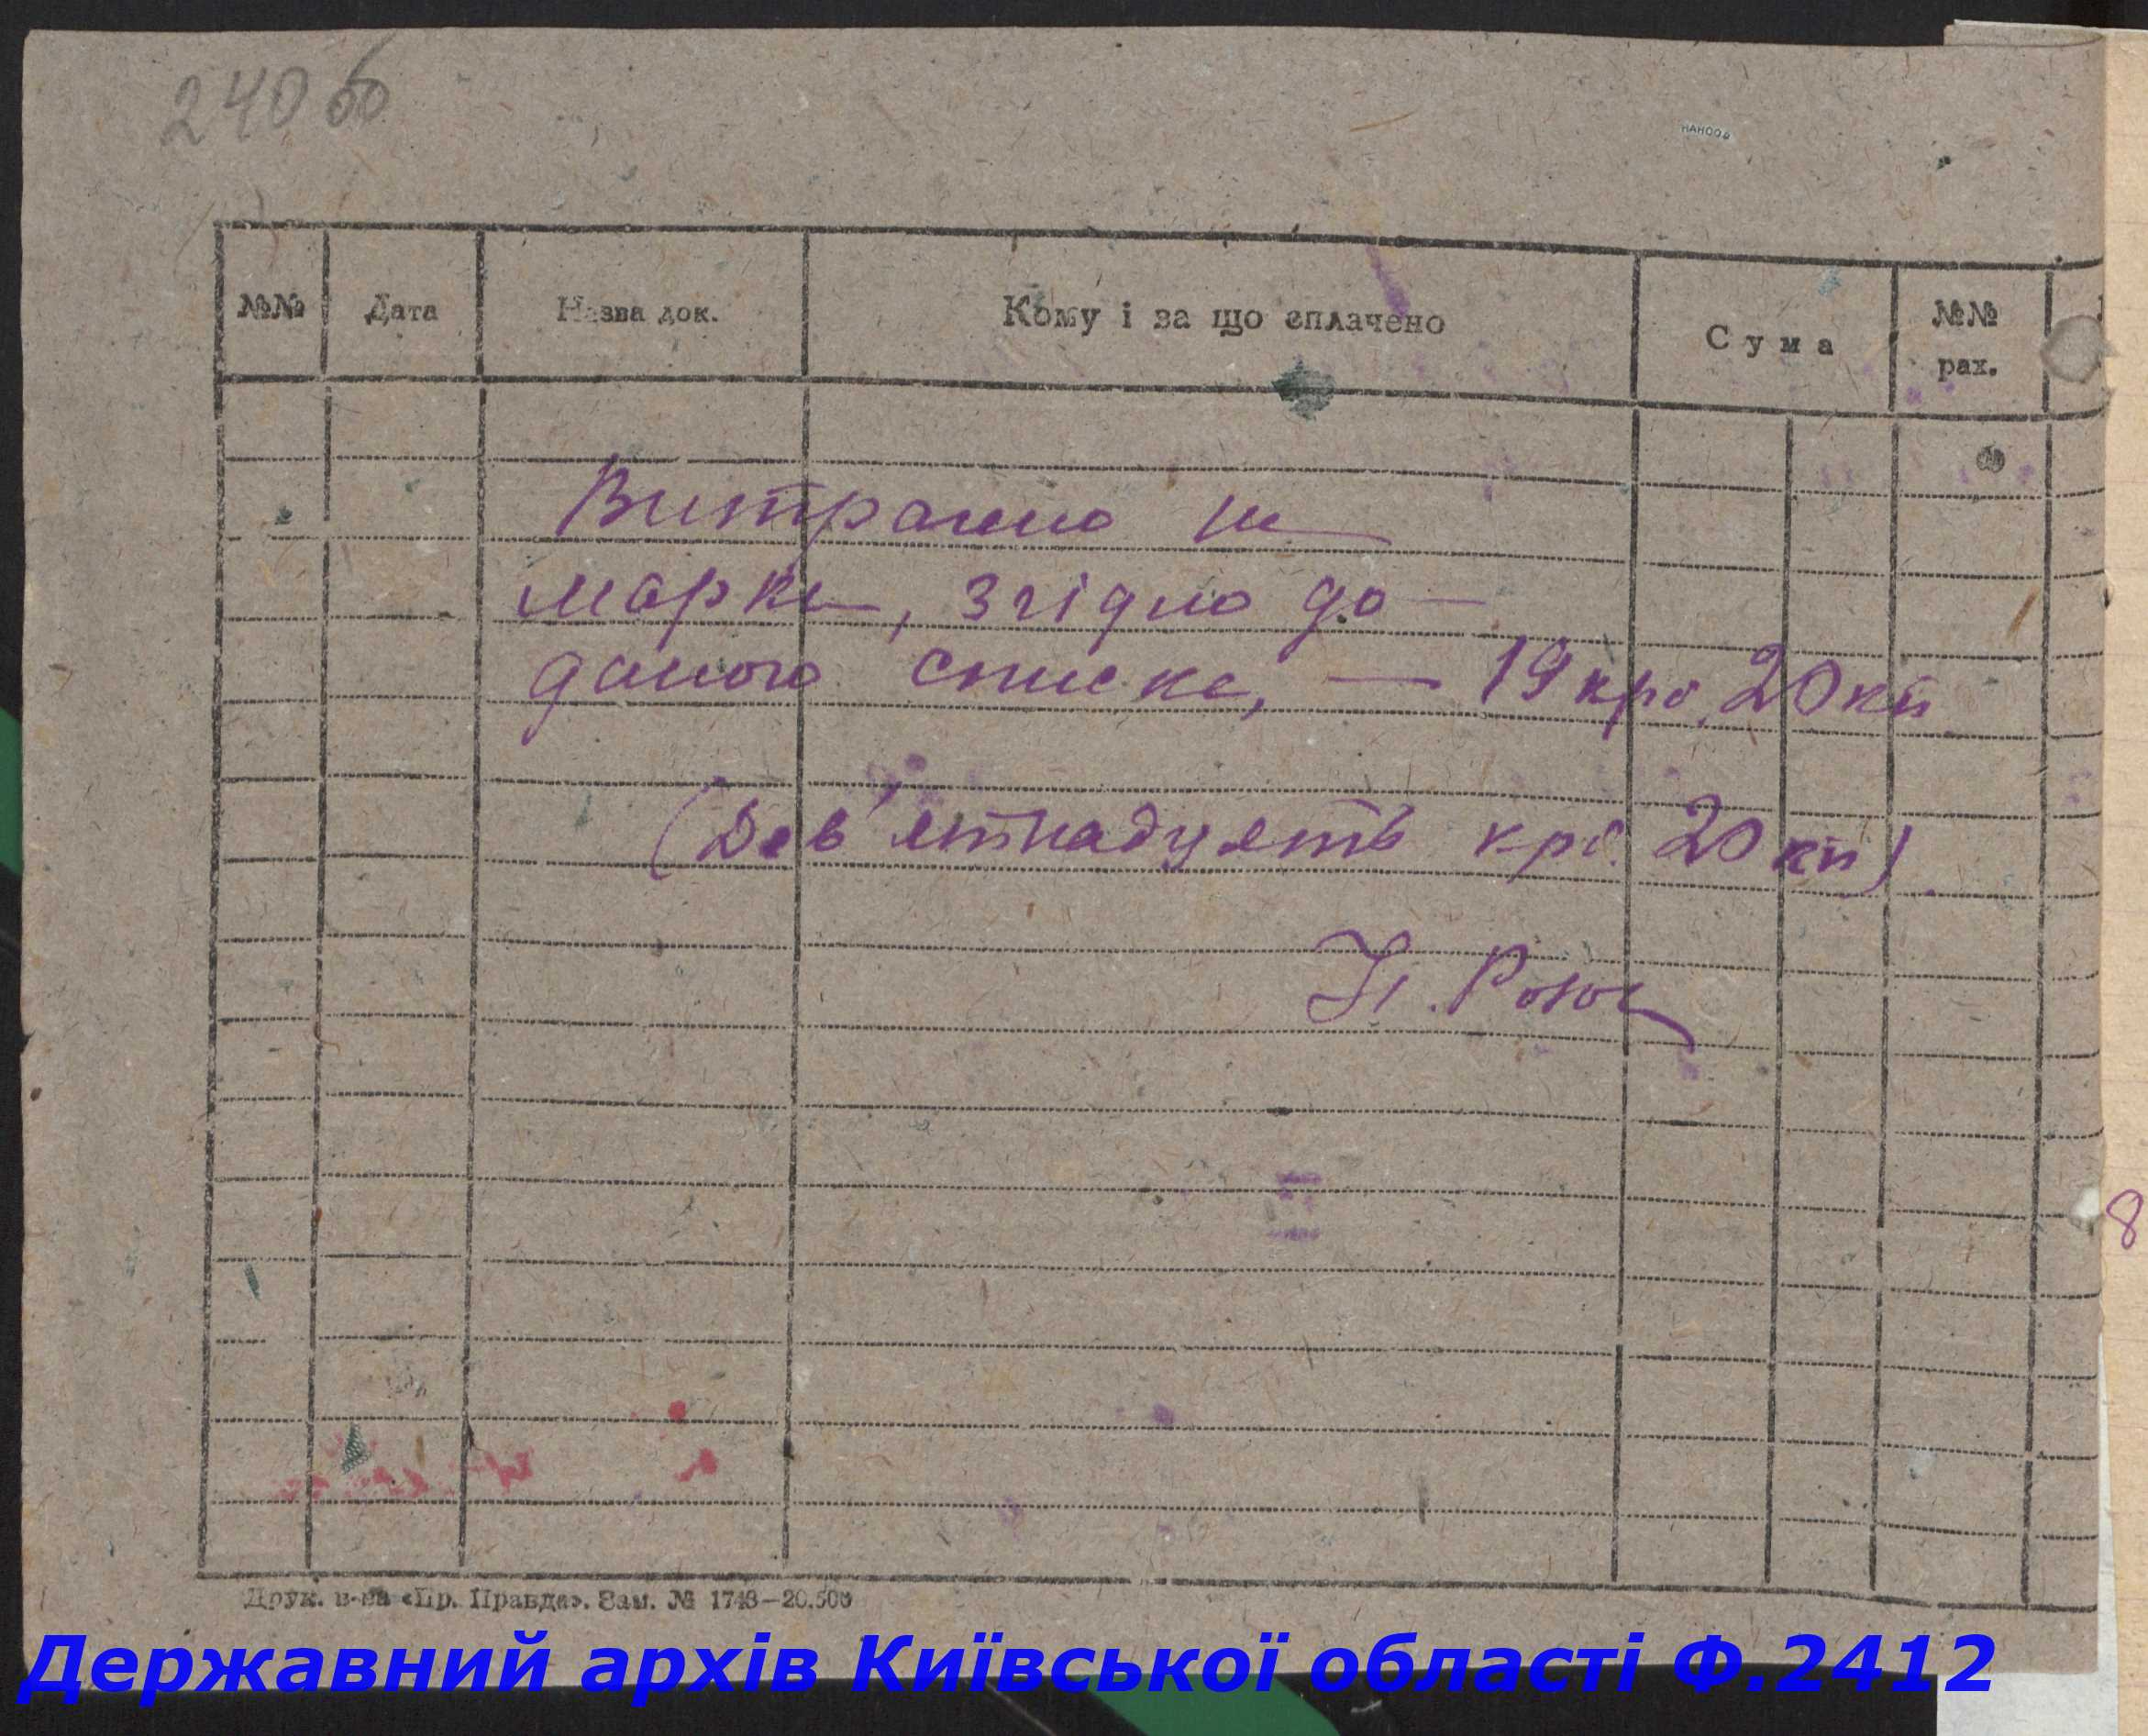 240 об
№№ Дата Назва док. Кому і за що сплачено Сума №№ рах.
Витрачено на
марки, згідно до-
даного списка, — 19 крб. 20 кп
(Дев'ятнадцять крб. 20 кп).
Друк. в-ва «Пр. Правда». Зам. № 1748—20.500
8
Державний архів Київської області Ф.2412